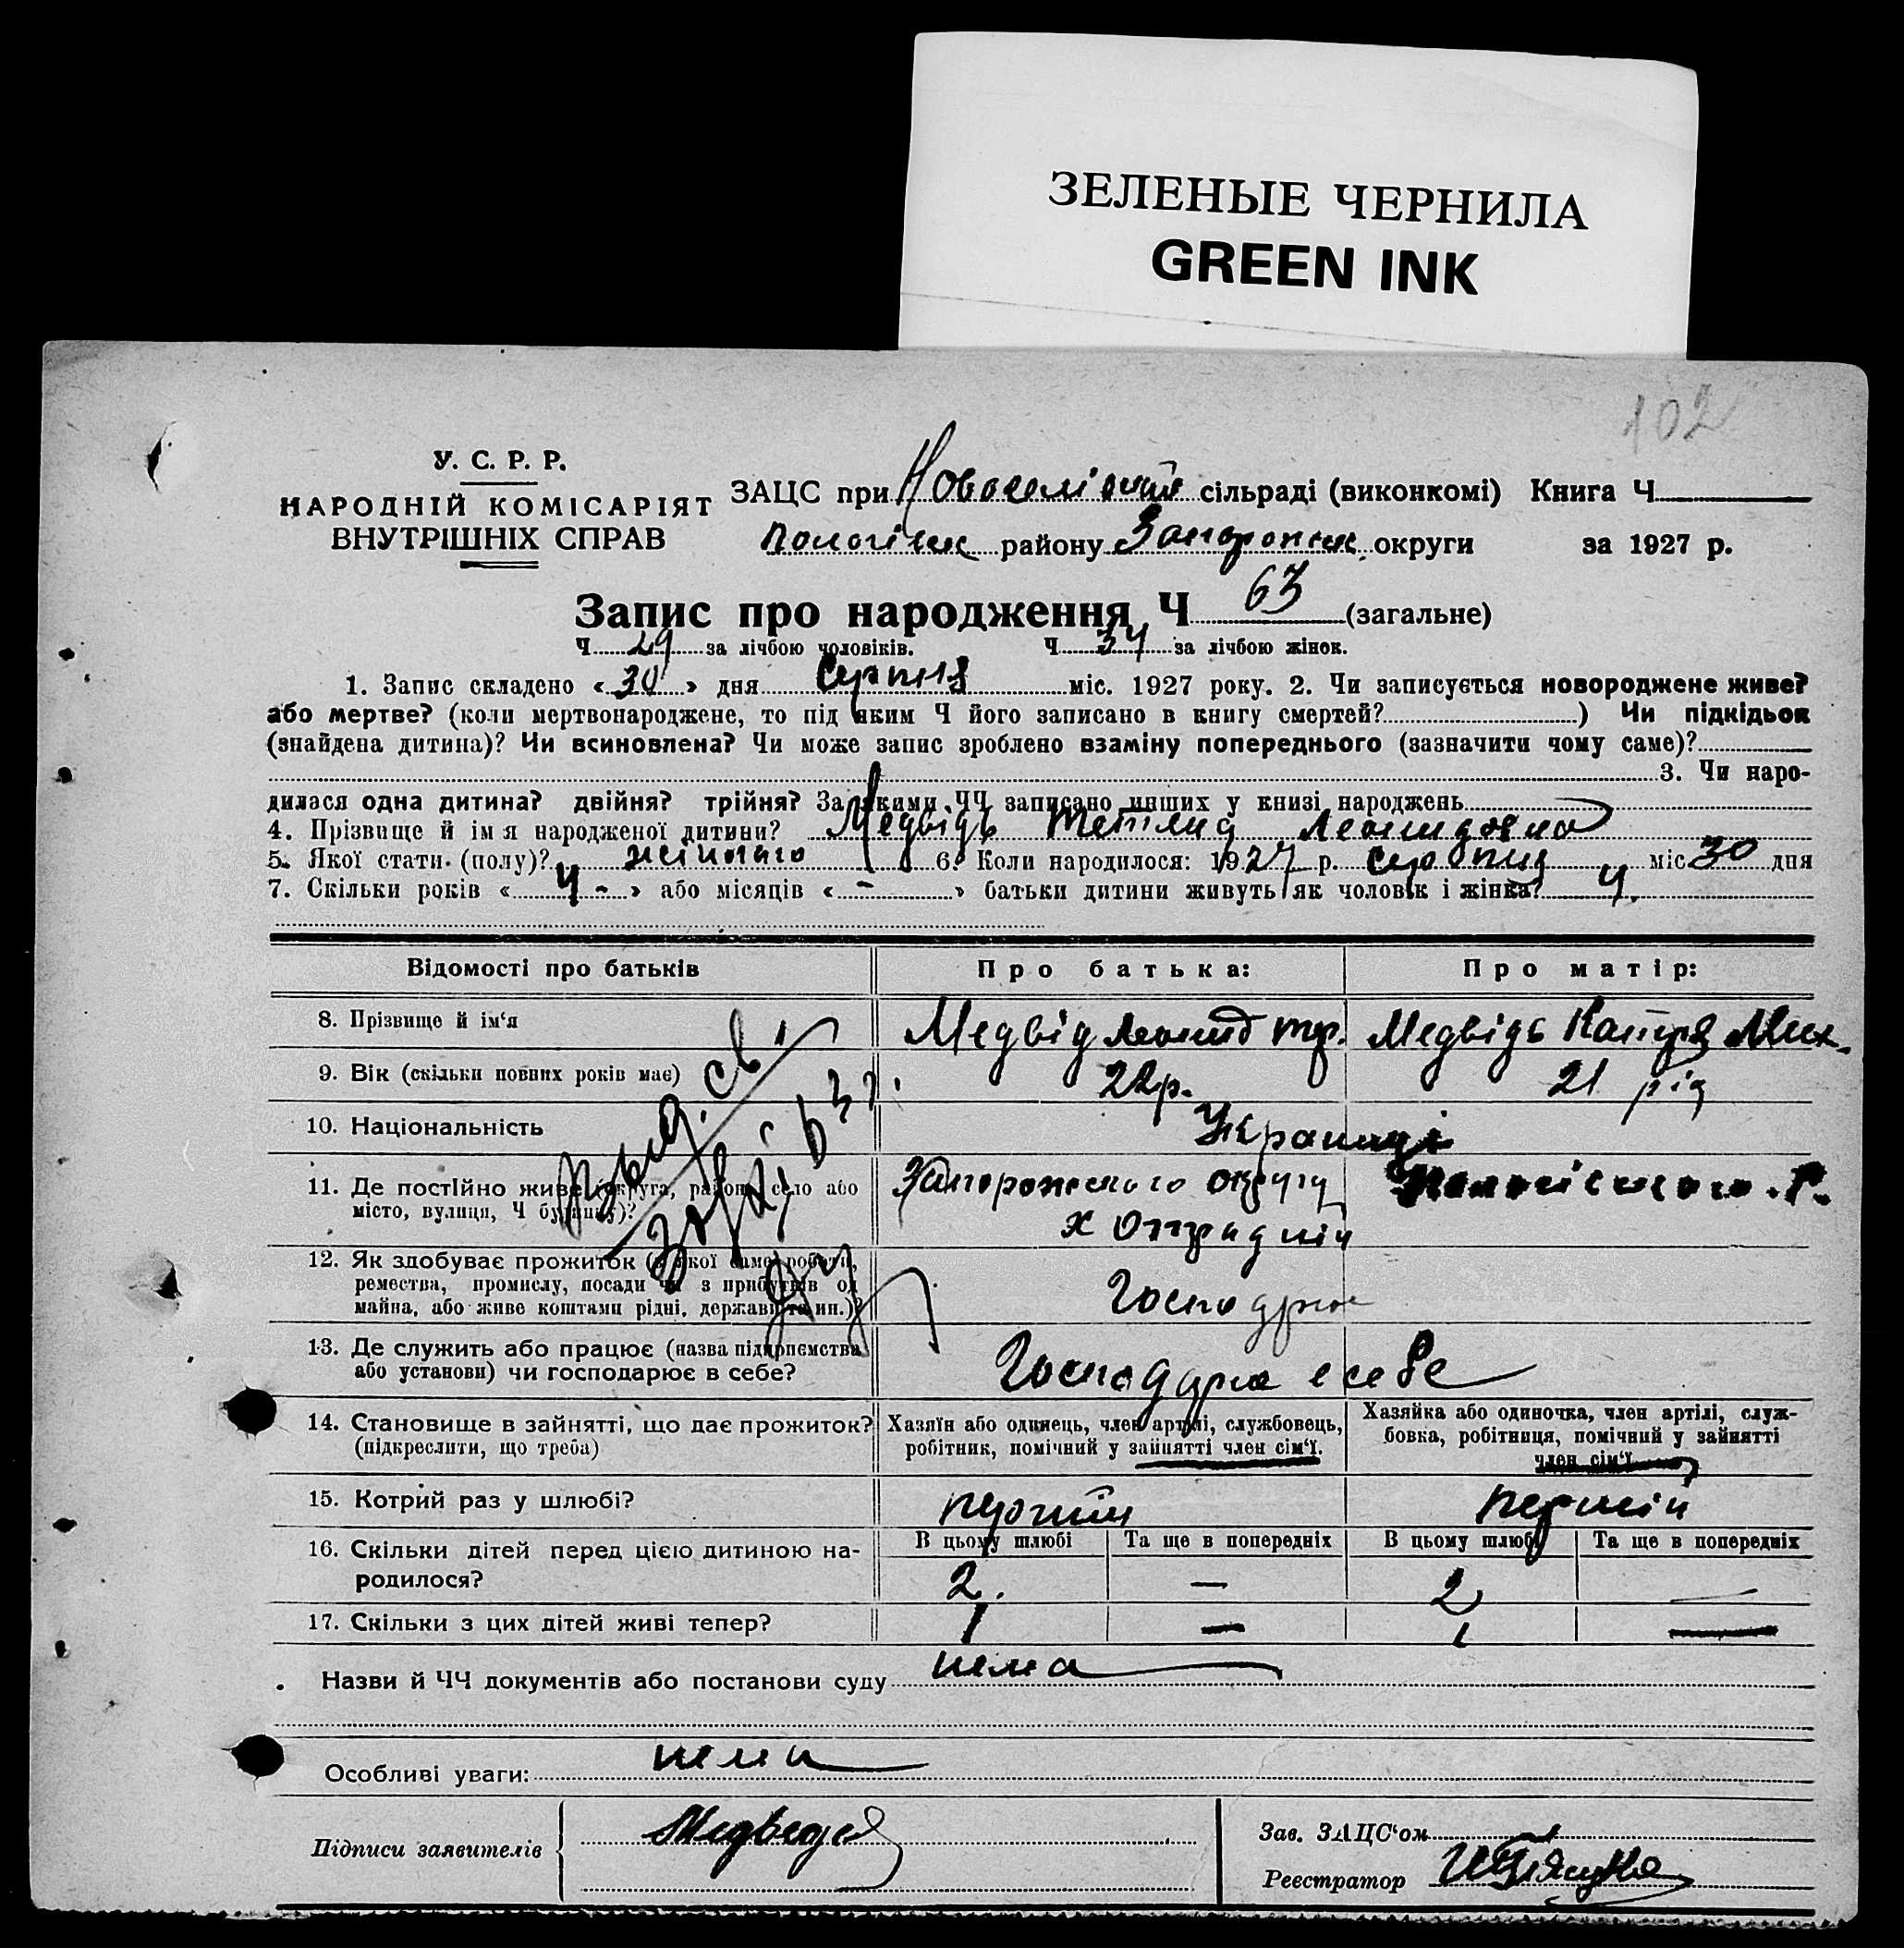 ЗЕЛЕНЫЕ ЧЕРНИЛА
GREEN INK
102
У. С. Р. Р.
НАРОДНІЙ КОМІСАРІЯТ
ВНУТРІШНІХ СПРАВ
ЗАЦС при сільраді (виконкомі) Книга Ч
Пологівськ району Запорожськ. округи за 1927 р.
Запис про народження Ч 63 (загальне)
Ч 29 за лічбою чоловіків. Ч 34 за лічбою жінок.
1. Запис складено « 30 » дня Серпня міс. 1927 року. 2. Чи записується новороджене живе?
або мертве? (коли мертвонароджене, то під яким Ч його записано в книгу смертей? ) Чи підкідьок
(знайдена дитина)? Чи всиновлена? Чи може запис зроблено взаміну попереднього (зазначити чому саме)?
3. Чи наро-
дилася одна дитина? двійня? трійня? За якими ЧЧ записано инших у книзі народжень
4. Прізвище й ім'я народженої дитини? Медвідь Леонидовна
5. Якої стати (полу)? жіночого 6. Коли народилося: 1927 р. Серпня міс 30 дня
7. Скільки років « 4 - » або місяців « - » батьки дитини живуть як чоловік і жінка? 4.
Відомості про батьків Про батька: Про матір:
8. Прізвище й ім'я Медвід Леонид тр. Медвідь Катря Мих.
9. Вік (скільки повних років має) 22 р. 21 рід
10. Національність Українці
11. Де постійно живе (округа, район, село або Запорожського округу Пологівського Р.
місто, вулиця, Ч будинку)? х Отрадній
12. Як здобуває прожиток (з якої саме роботи,
ремества, промислу, посади чи з прибутків од
майна, або живе коштами рідні, держави та ин.)?
13. Де служить або працює (назва підприємства
або установи) чи господарює в себе?
14. Становище в зайнятті, що дає прожиток? Хазяїн або одинець, член артілі, службовець, Хазяйка або одиночка, член артілі, служ-
(підкреслити, що треба) робітник, помічний у зайнятті член сім'ї. бовка, робітниця, помічний у зайнятті
член сім'ї
15. Котрий раз у шлюбі? перший перший
16. Скільки дітей перед цією дитиною на- В цьому шлюбі Та ще в попередніх В цьому шлюбі Та ще в попередніх
родилося? 2. — 2 —
17. Скільки з цих дітей живі тепер? 1 — 1 —
Назви й ЧЧ документів або постанови суду нема
Особливі уваги: нема
Підписи заявителів
Зав. ЗАЦС'ом
Реєстратор